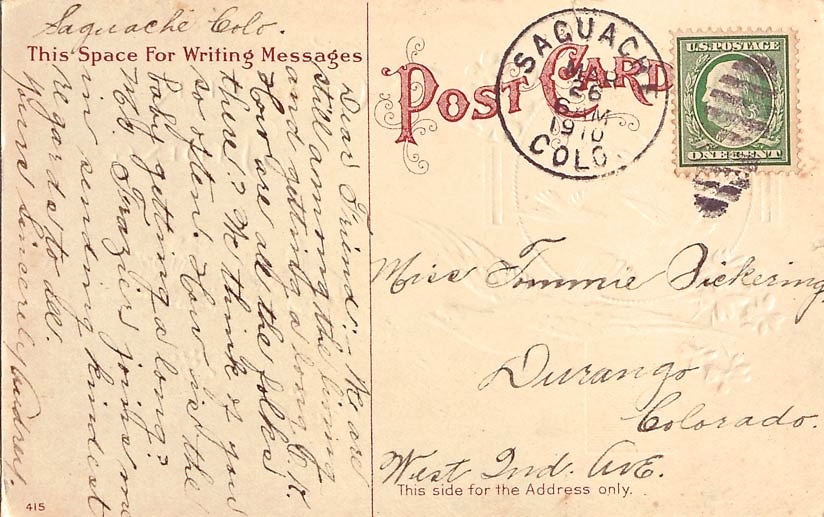 Saguache Colo.
This Space For Writing Messages
Dear Friend:- We are
still among the living
and getting along O.K.
How are all the folks
there? We think of you
so often. How is the
baby getting along?
Mr. Frazier joins me
in sending kindest
regards to all.
Yours Sincerely Audrey.
415
POST CARD
SAGUACHE
MAR
26
6 PM
1910
COLO.
U.S. POSTAGE
ONE CENT
Miss Tommie Pickering
Durango
Colorado.
West 2nd. Ave.
This side for the Address only.